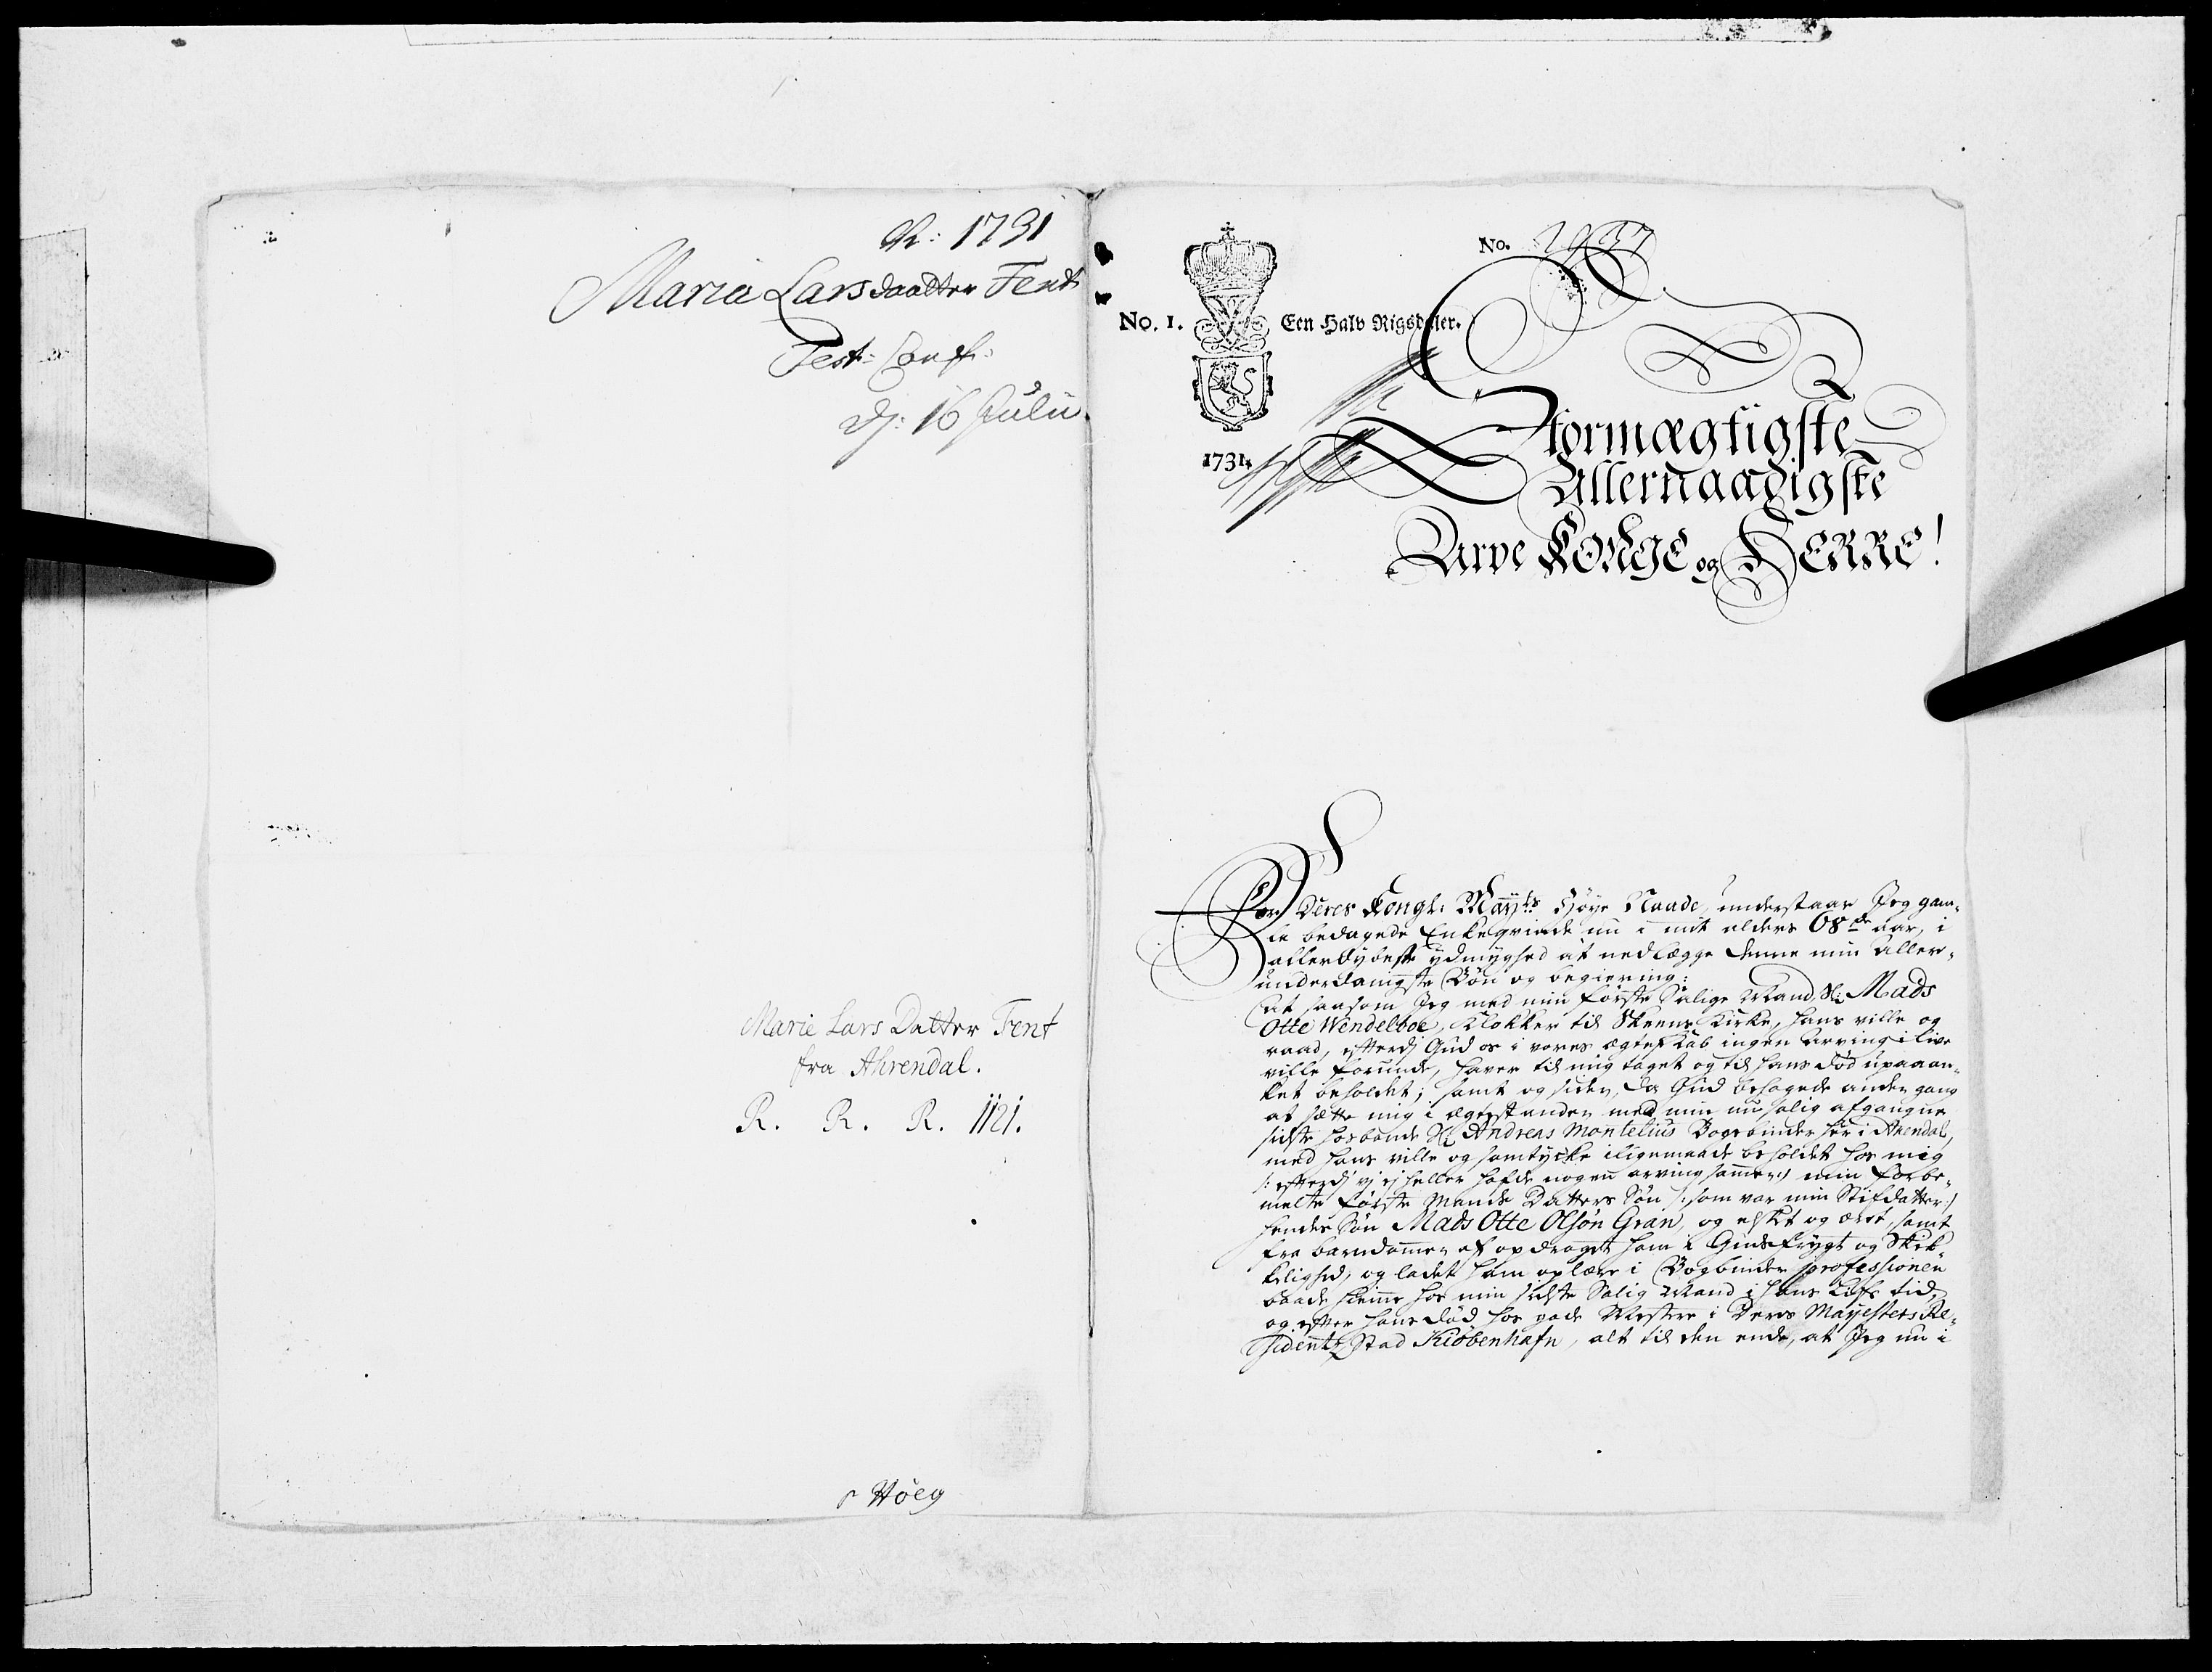 N: 1731
Maria Larsdaatter Fent
Test: Conf:
D: 16 Julii
Marie Lars Datter Fent
fra Ahrendal.
R. R. R. 1121.
Höeg
No. 2937
No. 1. Een Halv Rigsdaler.
1731.
Stormægtigste
Allernaadigste
Arve KONGE og HERRE!
For Deres Kongl: Mayts Høye Naade, understaar Jeg gam-
le bedagede Enkeqvinde nu i mit alders 68de aar, i
allerdybeste ydmyghed at nedlægge denne min Aller-
underdanigste Bøn og begiering:
at saasom Jeg med min første Salige Mand, Sl: Mads
Otte Wendelboe, Klokker til Skeens Kirke, hans villie og
raad, efterdj Gud os i vores ægteskab ingen arving i live
ville forunde, haver til mig taget og til hans død upaaan-
ket beholdet; samt og siden, da Gud behagede anden gang
at sætte mig i ægtestanden med min nu salig afgangne
sidste hosbonde Sl: Andreas Montelius Bogebinder her i Arendal,
med hans villie og samtycke iligemaade beholdet hos mig
/: efterdj vj ej heller hafde nogen arving sammen :/ min forbe-
melte første Mands Datters Søn /: som var min Stifdatter :/
hendes Søn Mads Otte Olsøn Gran, og elsket og æret, samt
fra barndommen af opdraget ham i Gudsfrygt og Skik-
kelighed, og ladet ham oplære i Bogbinder professionen
baade hiemme hos min sidste Salig Mand i hans Lifs tid,
og efter hans død hos gode Mestere i Deres Mayestets Re-
sidentz Stad Kiøbenhafn, alt til den ende, at Jeg nu i